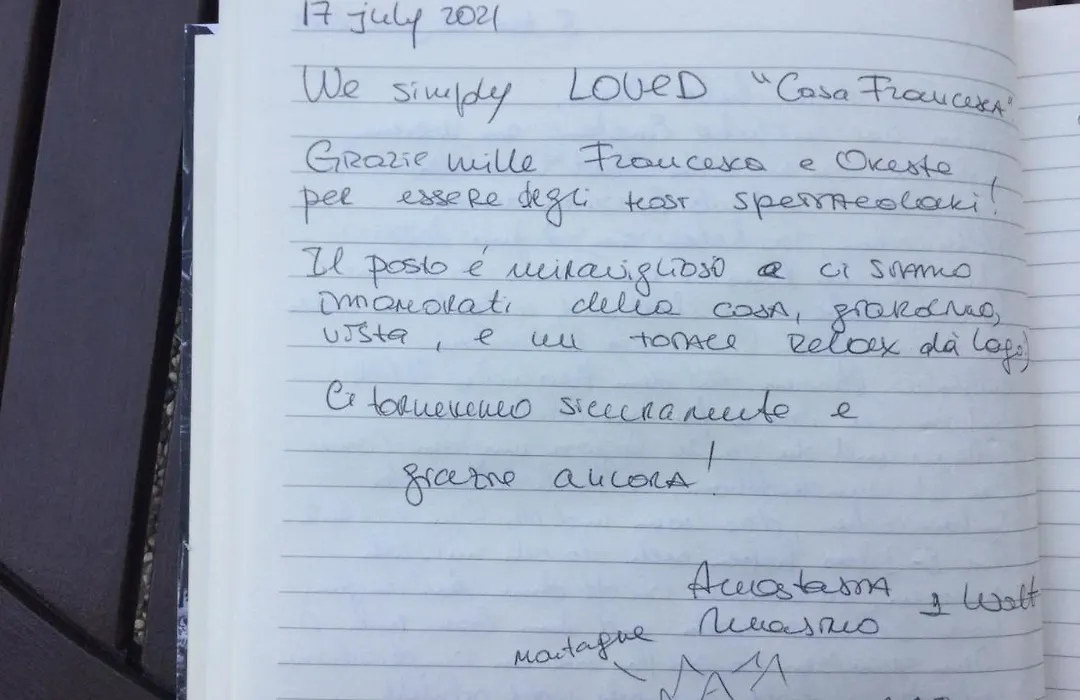 17 july 2021
We simply LOVED "Casa Francesca"
Grazie mille Francesca e Oreste
per essere degli host spettacolari!
Il posto é meraviglioso e ci siamo
innamorati della casa, giardino,
vista, e un totale relax da lago,
Ci torneremo sicuramente e
grazie ancora!
Anastasia
Walt
montagne